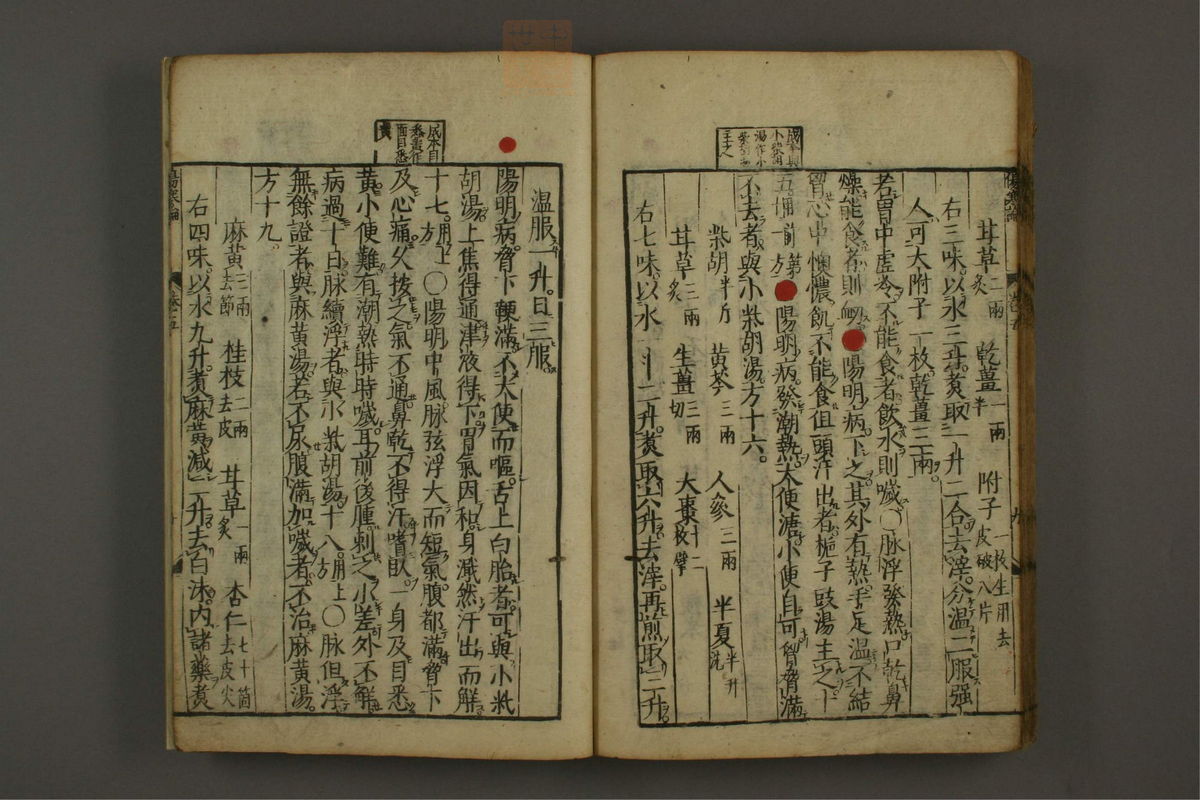 成本與
小柴胡
湯作小
柴胡湯
主之
甘草二兩炙 乾薑一兩半 附子一枚生用去皮破八片
右三味以水三升煮取一升二合去滓分溫二服强
人可大附子一枚乾薑三兩
若胃中虛冷不能食者飲水則噦○脉浮發熱口乾鼻
燥能食者則衂陽明病下之其外有熱手足溫不結
胷心中懊憹飢不能食但頭汗出者梔子豉湯主之十
五用前第方陽明病發潮熱大便溏小便自可胷脅滿
不去者與小柴胡湯方十六
柴胡半斤 黄芩三兩 人參三兩 半夏半升洗
甘草三兩炙 生薑三兩切 大棗十二枚擘
右七味以水一斗二升煮取六升去滓再煎取三升
成本目
悉黃作
面目悉
黃
溫服一升日三服
陽明病脅下鞕滿不大便而嘔舌上白胎者可與小柴
胡湯上焦得通津液得下胃氣因和身濈然汗出而解
十七用上方○陽明中風脉弦浮大而短氣腹都滿脅下
及心痛久按之氣不通鼻乾不得汗嗜臥一身及目悉
黃小便難有潮熱時時噦耳前後腫刺之小差外不解
病過十日脉續浮者與小柴胡湯十八用上方○脉但浮
無餘證者與麻黃湯若不尿腹滿加噦者不治麻黃湯
方十九
麻黃三兩去節 桂枝二兩去皮 甘草一兩炙 杏仁七十箇去皮尖
右四味以水九升煮麻黃減二升去白沫內諸藥煮